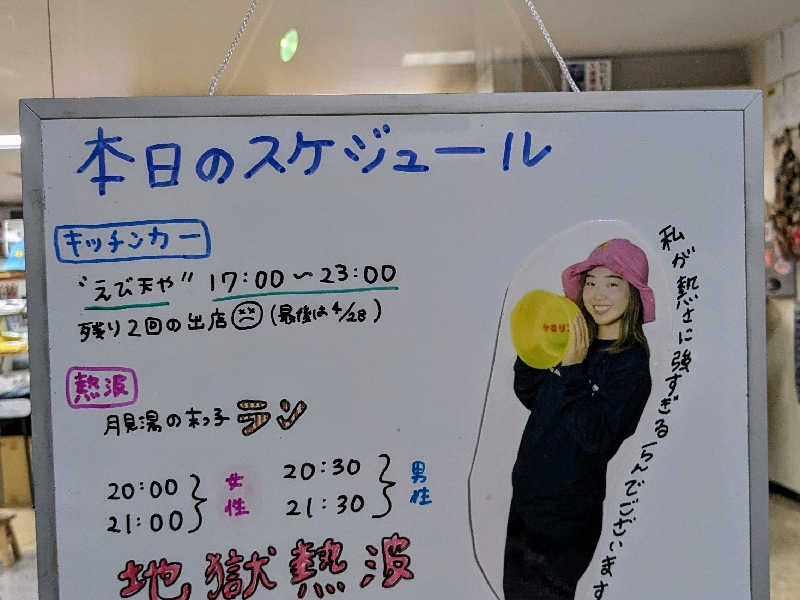 本日のスケジュール
キッチンカー
"えび天や" 17:00〜23:00
残り2回の出店 (最後は4/28)
熱波
月見湯の末っ子 ラン
20:00
21:00
女性
20:30
21:30
男性
地獄熱波
私が熱さに強すぎるらんでございます
ケロリン